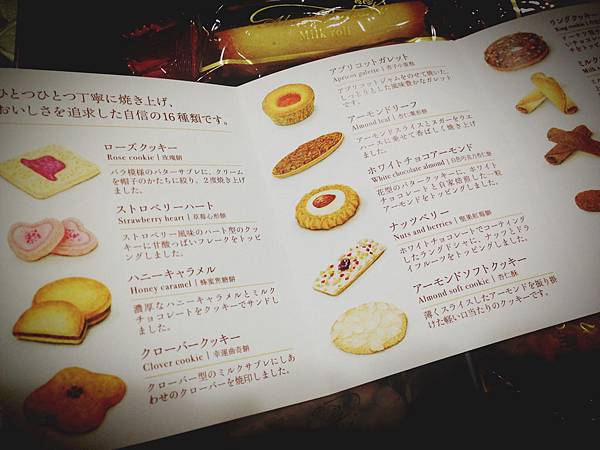 Milk roll
ひとつひとつ丁寧に焼き上げ、
おいしさを追求した自信の16種類です。
ローズクッキー
Rose cookie | 玫瑰餅
バラ模様のバターサブレに、クリーム
を帽子のかたちに絞り、2度焼き上げ
ました。
ストロベリーハート
Strawberry heart | 草莓心形餅
ストロベリー風味のハート型のクッ
キーに甘酸っぱいフレークをトッピ
ングしました。
ハニーキャラメル
Honey caramel | 蜂蜜焦糖餅
濃厚なハニーキャラメルとミルク
チョコレートをクッキーでサンドし
ました。
クローバークッキー
Clover cookie | 幸運曲奇餅
クローバー型のミルクサブレにしあ
わせのクローバーを焼印しました。
アプリコットガレット
Apricot galette | 杏子小蛋糕
アプリコットジャムをのせて焼いた、
しっとりとした風味豊かなガレット
です。
アーモンドリーフ
Almond leaf | 杏仁葉形餅
アーモンドスライスとヌガーをウエ
ハースに乗せて香ばしく焼き上げ
ました。
ホワイトチョコアーモンド
White chocolate almond | 白色巧克力杏仁餅
花型のバタークッキーに、ホワイト
チョコレートと自家焙煎した一粒
アーモンドをトッピングしました。
ナッツベリー
Nuts and berries | 堅果紅莓餅
ホワイトチョコレートでコーティング
したラングドシャに、ナッツとドラ
イフルーツをトッピングしました。
アーモンドソフトクッキー
Almond soft cookie | 杏仁酥
薄くスライスしたアーモンドを振り掛
けた軽い口当たりのクッキーです。
リングクッキー
ミルク